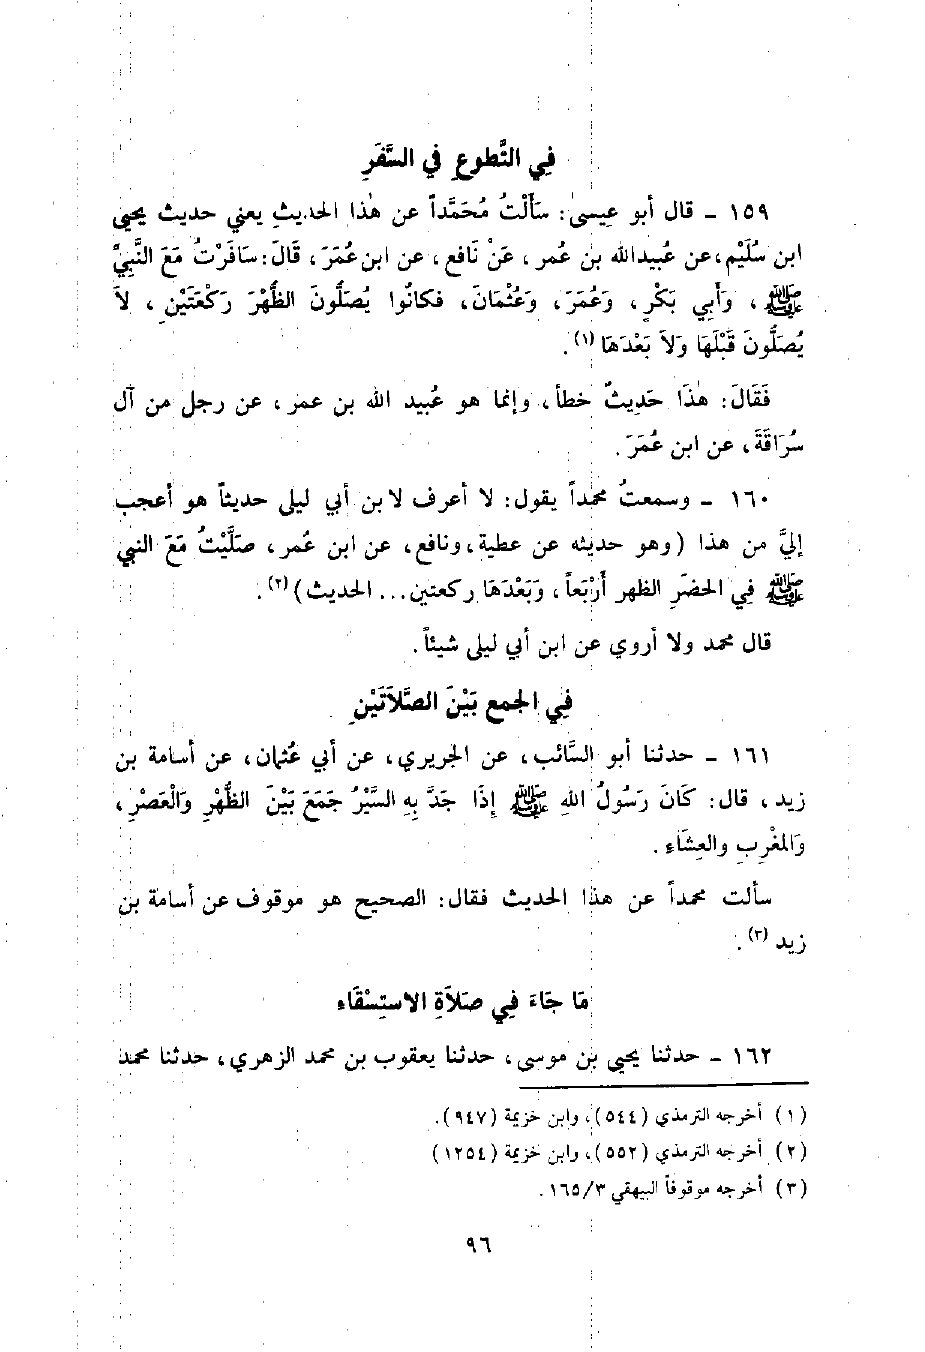 فِي التَّطوعِ في السَّفَرِ
١٥٩ - قال أبو عيسىٰ: سَأَلْتُ مُحَمَّداً عن هٰذا الحديثِ يعني حديث يحيى
ابن سُلَيْم، عن عُبيدالله بن عُمر، عَنْ نَافع، عن ابن عُمَرَ، قَالَ: سَافَرْتُ مَعَ النَّبِيِّ
ﷺ، وَأَبِي بَكْرٍ، وَعُمَرَ، وَعُثْمَانَ، فكانُوا يُصَلُّونَ الظُّهْرَ رَكْعَتَيْنِ، لاَ
يُصَلُّونَ قَبْلَهَا وَلاَ بَعْدَهَا (١).
فَقَالَ: هٰذَا حَدِيثٌ خطأ، وإنما هو عُبيد الله بن عمر، عن رجل من آل
سُرَاقَةَ، عن ابن عُمَرَ.
١٦٠ - وسمعتُ محمداً يقول: لا أعرف لابن أبي ليلى حديثاً هو أعجب
إليَّ من هذا (وهو حديثه عن عطية، ونافع، عن ابن عُمر، صَلَّيْتُ مَعَ النبي
ﷺ فِي الحضَرِ الظهر أَرْبَعاً، وَبَعْدَهَا ركعتين... الحديث) (٢).
قال محمد ولا أروي عن ابن أبي ليلى شيئاً.
فِي الجمع بَيْنَ الصَّلاَتَيْنِ
١٦١ - حدثنا أبو السَّائب، عن الجريري، عن أبي عُثمان، عن أسامة بن
زيد، قال: كَانَ رَسُولُ اللهِ ﷺ إِذَا جَدَّ بِهِ السَّيْرُ جَمَعَ بَيْنَ الظُّهْرِ وَالْعَصْرِ،
وَالمغْرِبِ والعِشَاءِ.
سألت محمداً عن هذا الحديث فقال: الصحيح هو موقوف عن أسامة بن
زيد (٣).
مَا جَاءَ فِي صَلاَةِ الاستِسْقَاء
١٦٢ - حدثنا يحيى بن موسى، حدثنا يعقوب بن محمد الزهري، حدثنا محمد
(١) أخرجه الترمذي (٥٤٤)، وابن خزيمة (٩٤٧).
(٢) أخرجه الترمذي (٥٥٢)، وابن خزيمة (١٢٥٤)
(٣) أخرجه موقوفاً البيهقي ١٦٥/٣.
٩٦